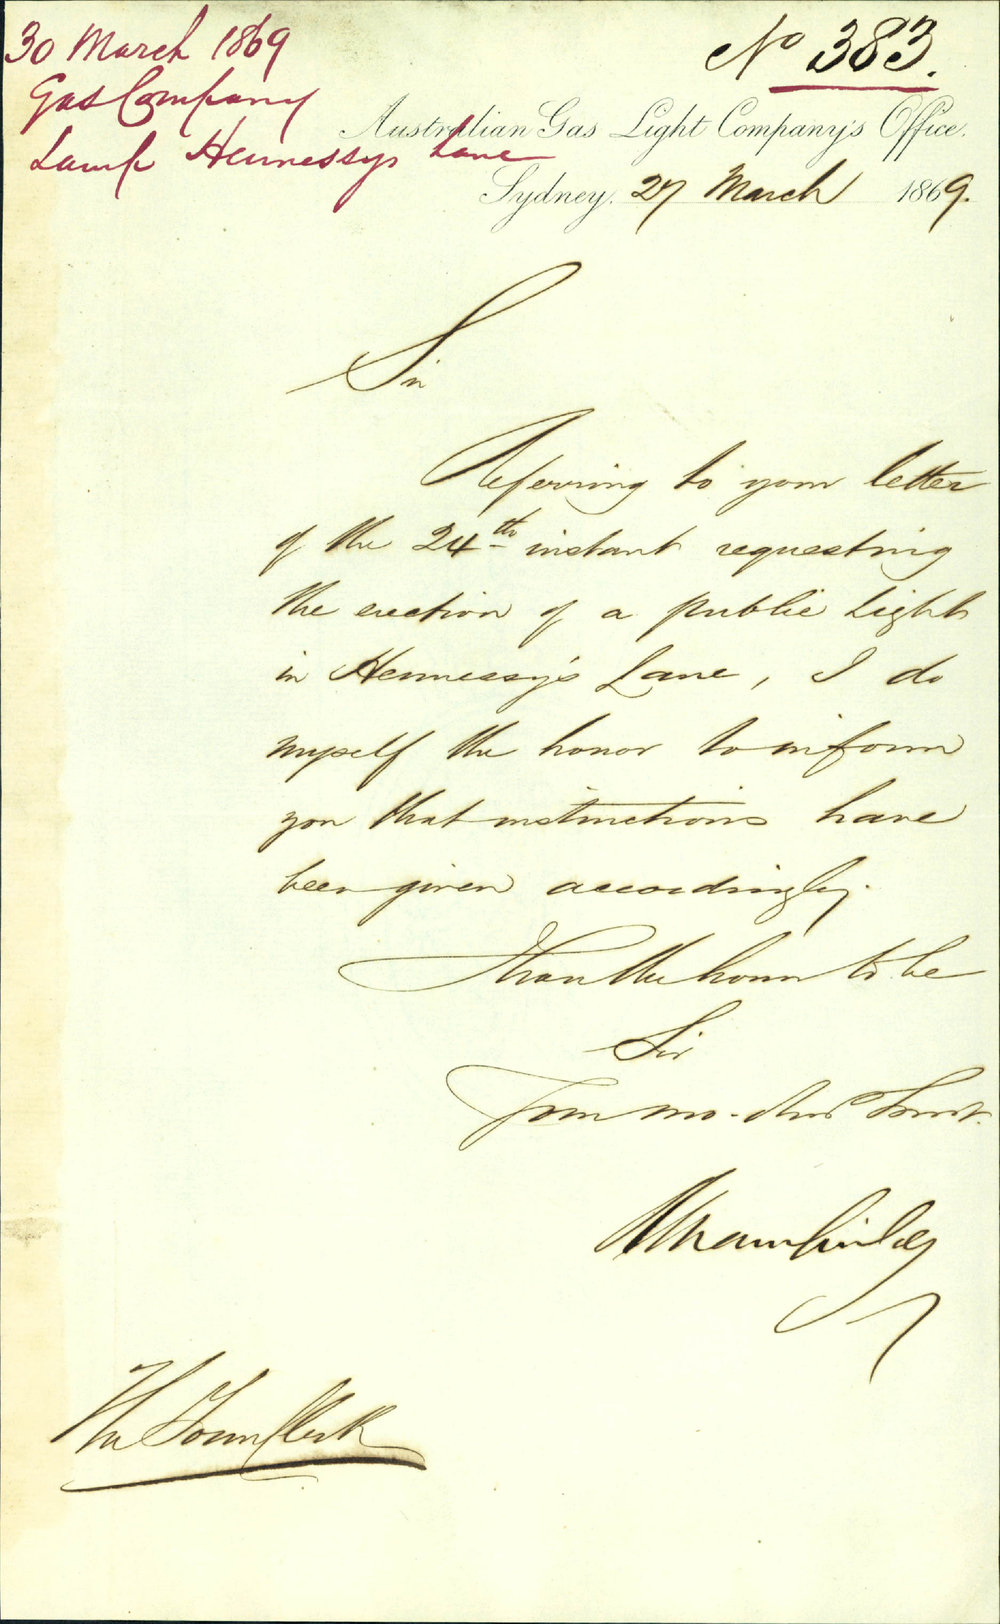 30 March 1869
Gas Company
Lamp Hennessys Lane
No 383.
Australian Gas Light Company's Office.
Sydney, 27 March 1869.
Sir
Referring to your letter
of the 24th instant requesting
the erection of a public light
in Hennessy's Lane, I do
myself the honor to inform
you that instructions have
been given accordingly.
I have the honor to be
Sir
Your mo. obed Servt.
The Town Clerk